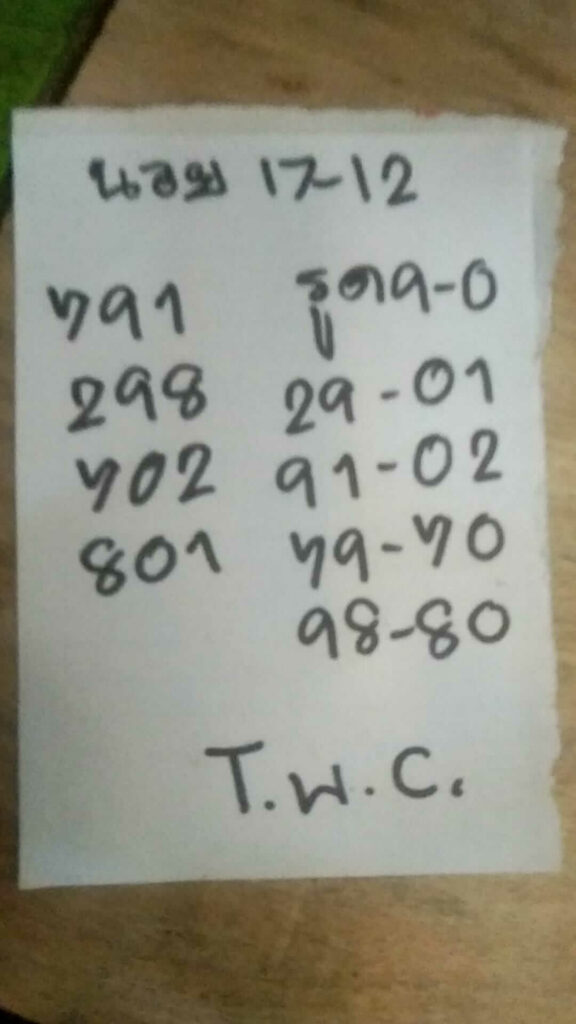 นอย 17-12
791 รูด9-0
298 29-01
702 91-02
801 79-70
98-80
T.W.C.